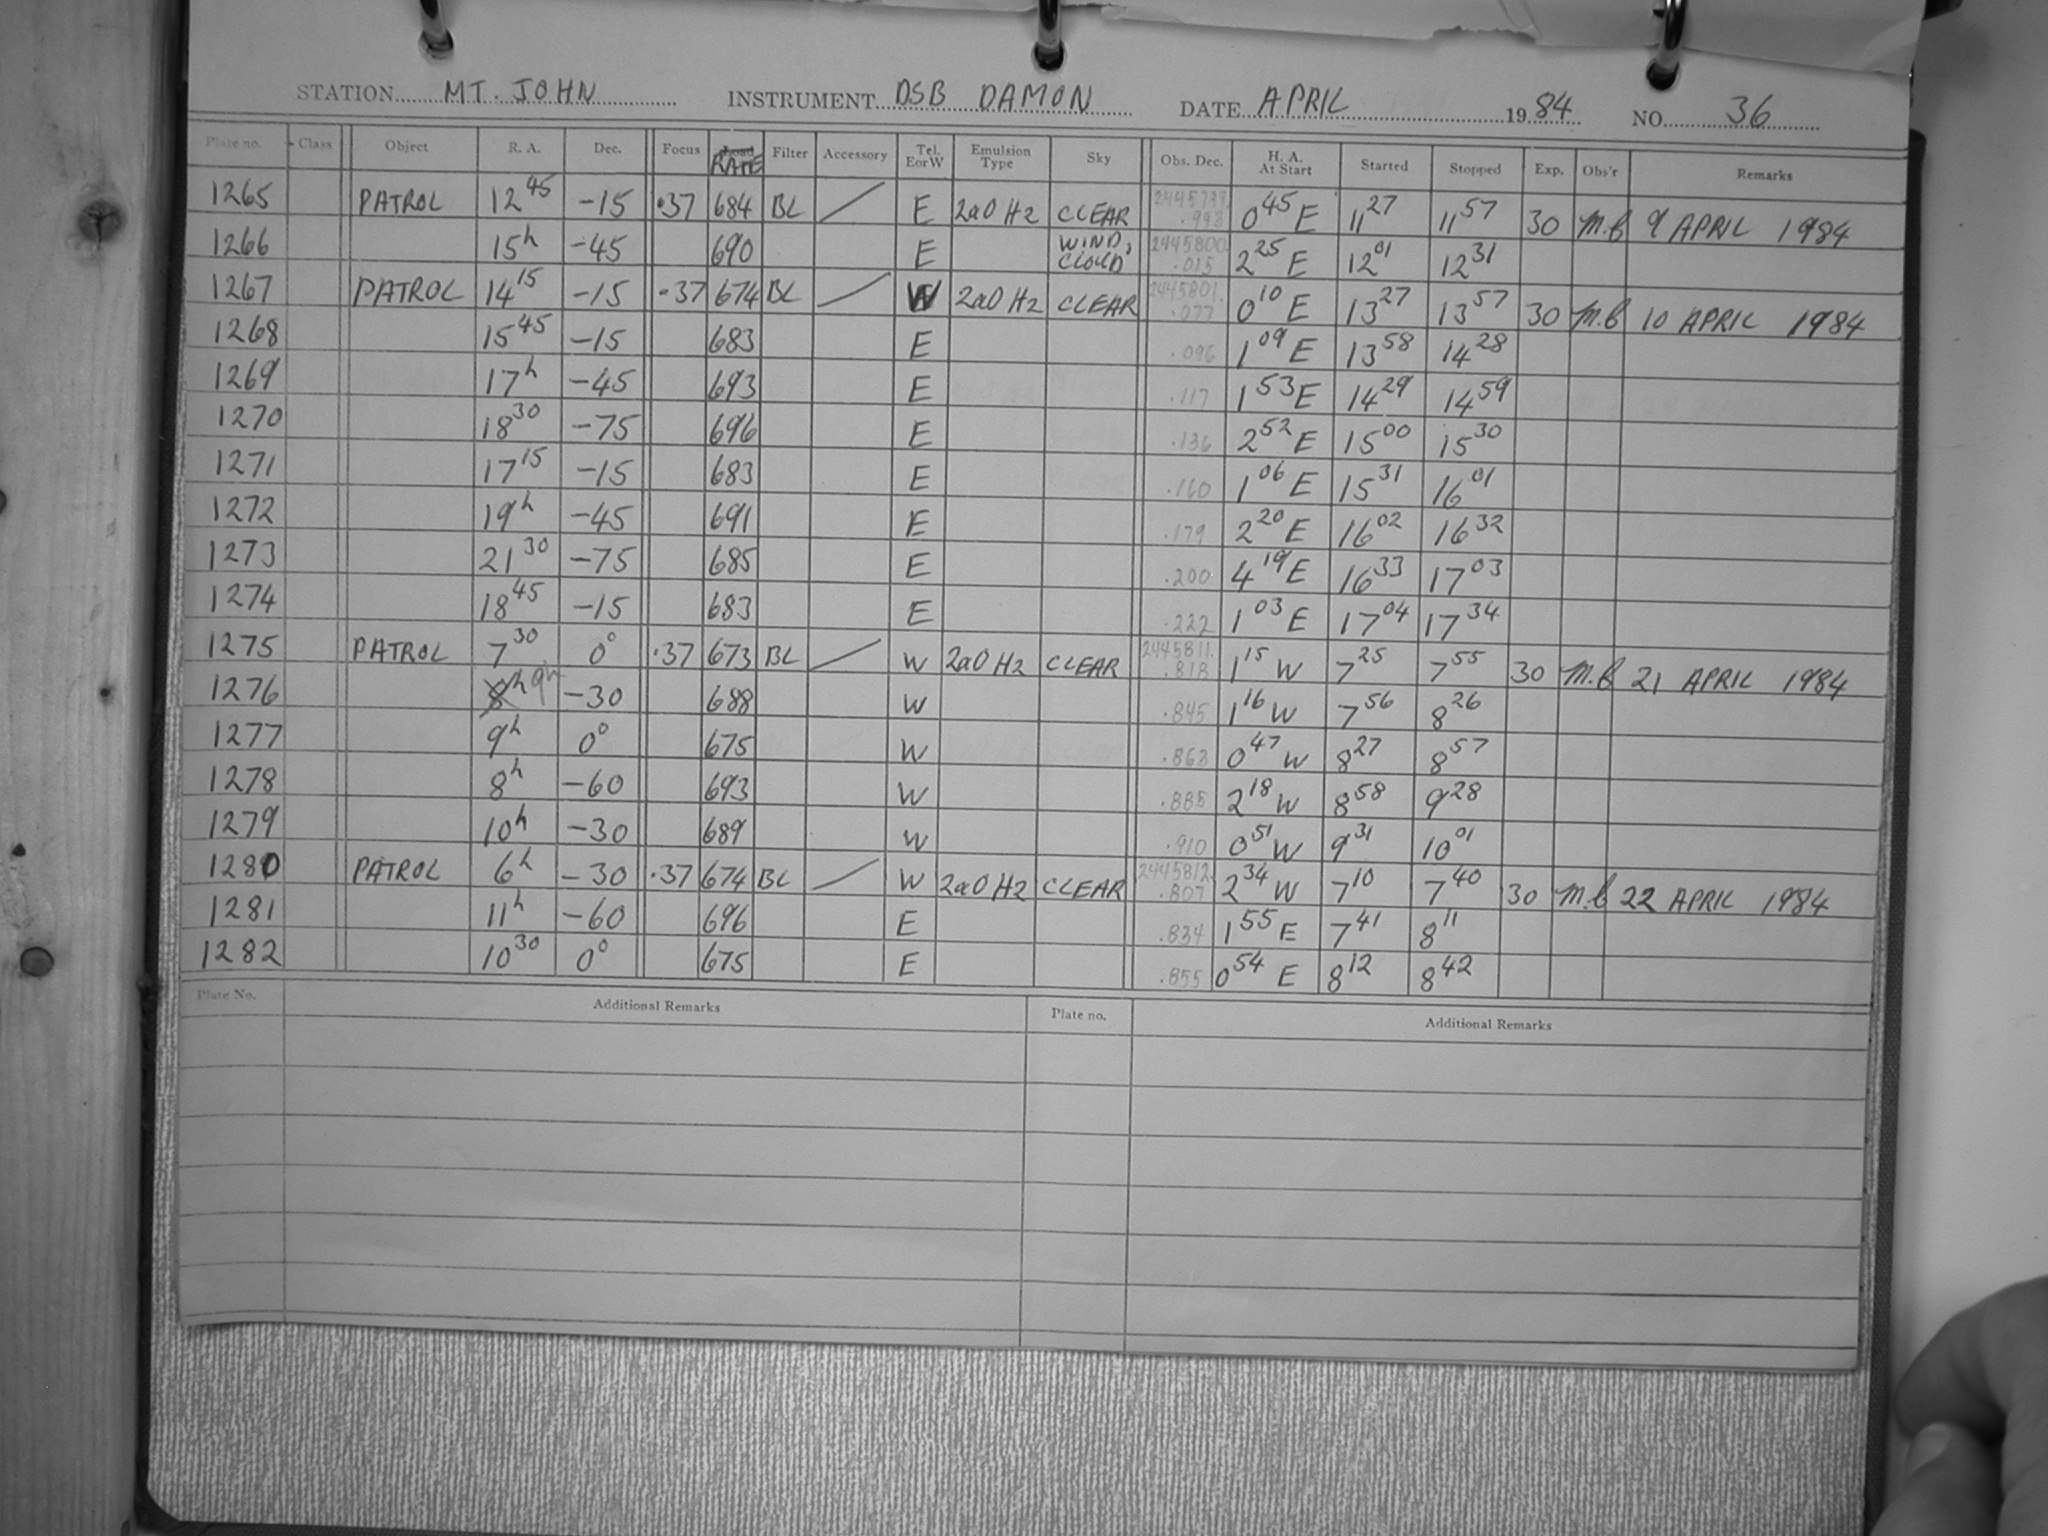 STATION MT. JOHN INSTRUMENT DSB DAMON DATE APRIL 1984 NO. 36
Plate no. Class Object R. A. Dec. Focus RATE Filter Accessory Tel. E or W Emulsion Type Sky Obs. Dec. H. A. At Start Started Stopped Exp. Obs'r Remarks
1265 PATROL 12 45 -15 .37 684 BL E 2a0 H2 CLEAR 2445799 .993 0 45 E 11 27 11 57 30 M.B 9 APRIL 1984
1266 15h -45 690 E WIND, CLOUD 2445800 .015 2 25 E 12 01 12 31
1267 PATROL 14 15 -15 .37 674 BL 2a0 H2 CLEAR 2445801. .077 0 10 E 13 27 13 57 30 M.B 10 APRIL 1984
1268 15 45 -15 683 E .096 1 09 E 13 58 14 28
1269 17h -45 693 E .117 1 53 E 14 29 14 59
1270 18 30 -75 696 E .136 2 52 E 15 00 15 30
1271 17 15 -15 683 E .160 1 06 E 15 31 16 01
1272 19h -45 691 E .179 2 20 E 16 02 16 32
1273 21 30 -75 685 E .200 4 19 E 16 33 17 03
1274 18 45 -15 683 E .222 1 03 E 17 04 17 34
1275 PATROL 7 30 0° .37 673 BL W 2a0 H2 CLEAR 2445811. .818 1 15 W 7 25 7 55 30 M.B 21 APRIL 1984
1276 8h 9h -30 688 W .845 1 16 W 7 56 8 26
1277 9h 0° 675 W .863 0 47 W 8 27 8 57
1278 8h -60 693 W .885 2 18 W 8 58 9 28
1279 10h -30 689 W .910 0 51 W 9 31 10 01
1280 PATROL 6h -30 .37 674 BL W 2a0 H2 CLEAR 2445812. .807 2 34 W 7 10 7 40 30 M.B 22 APRIL 1984
1281 11h -60 696 E .834 1 55 E 7 41 8 11
1282 10 30 0° 675 E .855 0 54 E 8 12 8 42
Plate No. Additional Remarks Plate no. Additional Remarks